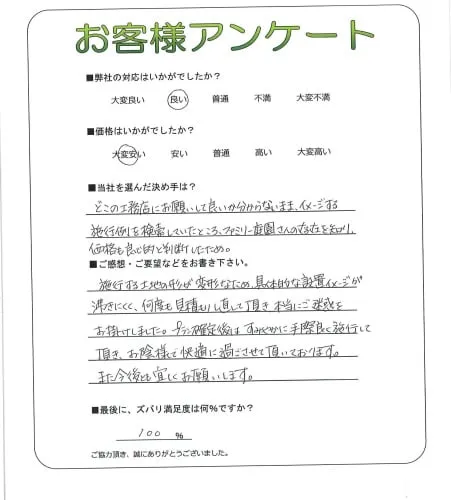 お客様アンケート
■弊社の対応はいかがでしたか？
大変良い 良い 普通 不満 大変不満
■価格はいかがでしたか？
大変安い 安い 普通 高い 大変高い
■当社を選んだ決め手は？
どこの工務店にお願いして良いか分からないまま、イメージする
施行例を検索していたところ、ファミリー庭園さんの存在を知り、
価格も良心的と判断したため。
■ご感想・ご要望などをお書き下さい。
施行する土地の形が変形なため、具体的な設置イメージが
沸きにくく、何度も見積もり直して頂き本当にご迷惑を
お掛けしました。プラン確定後はすみやかに手際良く施行して
頂き、お陰様で快適に過ごさせて頂いております。
また今後とも宜しくお願いします。
■最後に、ズバリ満足度は何%ですか？
100 %
ご協力頂き、誠にありがとうございました。